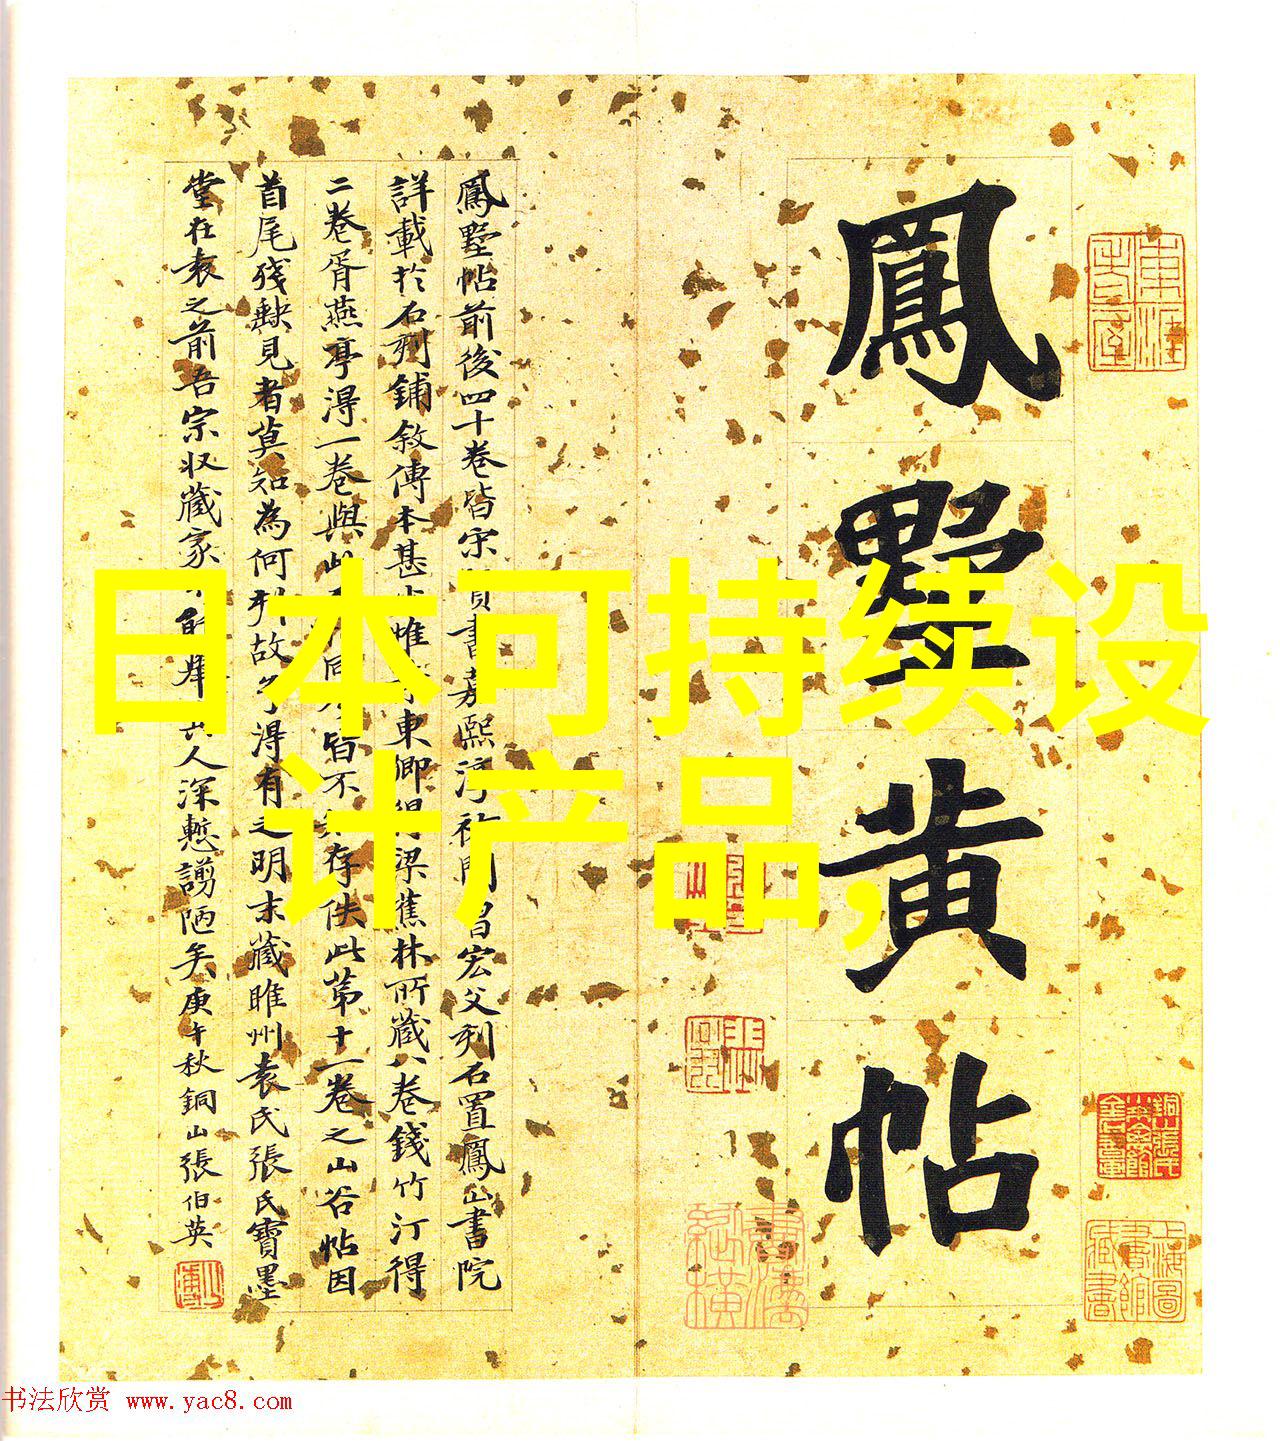 鳳墅黄帖
鳳墅帖前後四十卷皆宋賢書嘉熙淳祐間曾宏父刻石置鳳山書院
詳載於石刻鋪敘傳本甚少惟東卿得梁蕉林所藏八卷錢竹汀得
二卷胥燕亭得一卷與此不同皆不存佚此第十一卷之山谷帖因
首尾殘缺見者莫知為何刻故予得有之明末藏睢州袁氏張氏寶墨
堂在袁之前吾宗収藏家不能舉其人深慙謭陋矣庚午秋銅山張伯英
上海圖書館藏書
日本可持续设
计产品,
书法欣赏 www.yac8.com